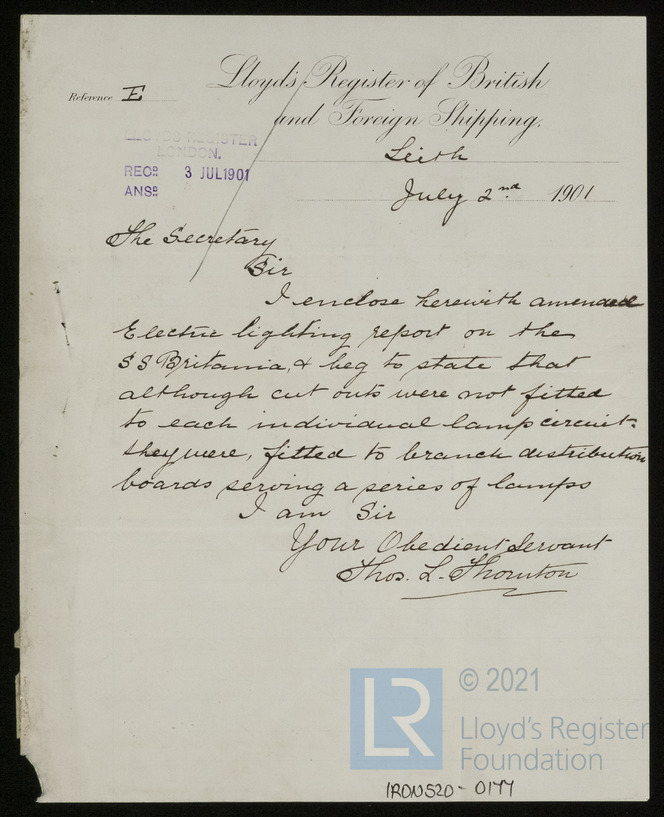 Lloyd's Register of British
and Foreign Shipping.
Reference E
LLOYD'S REGISTER
LONDON.
RECD 3 JUL 1901
ANSD
Leith
July 2nd 1901
The Secretary
Sir
I enclose herewith amended
Electric lighting report on the
SS Britania, & beg to state that
although cut outs were not fitted
to each individual lamp circuit.
they were, fitted to branch distribution
boards serving a series of lamps
I am Sir
Your Obedient Servant
Thos. L. Thornton
LR
© 2021
Lloyd's Register
Foundation
IRON520-0177